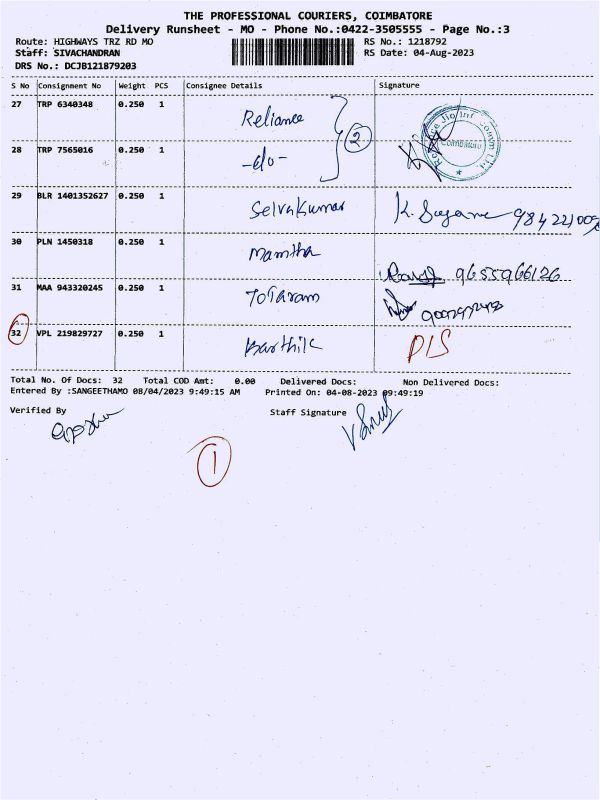 THE PROFESSIONAL COURIERS, COIMBATORE
Delivery Runsheet - MO - Phone No.:0422-3505555 - Page No.:3
Route: HIGHWAYS TRZ RD MO RS No.: 1218792
Staff: SIVACHANDRAN RS Date: 04-Aug-2023
DRS No.: DCJB121879203
S No Consignment No Weight PCS Consignee Details Signature
27 TRP 6340348 0.250 1 Reliance
2
28 TRP 7565016 0.250 1 -do-
Coimbatore
29 BLR 1401352627 0.250 1 Selvakumar
30 PLN 1450318 0.250 1 Mamtha 9655966126
31 MAA 943320245 0.250 1 ToTaram
32 VPL 219829727 0.250 1 Karthik D/S
Total No. Of Docs: 32 Total COD Amt: 0.00 Delivered Docs: Non Delivered Docs:
Entered By :SANGEETHAMO 08/04/2023 9:49:15 AM Printed On: 04-08-2023 09:49:19
Verified By Staff Signature
1